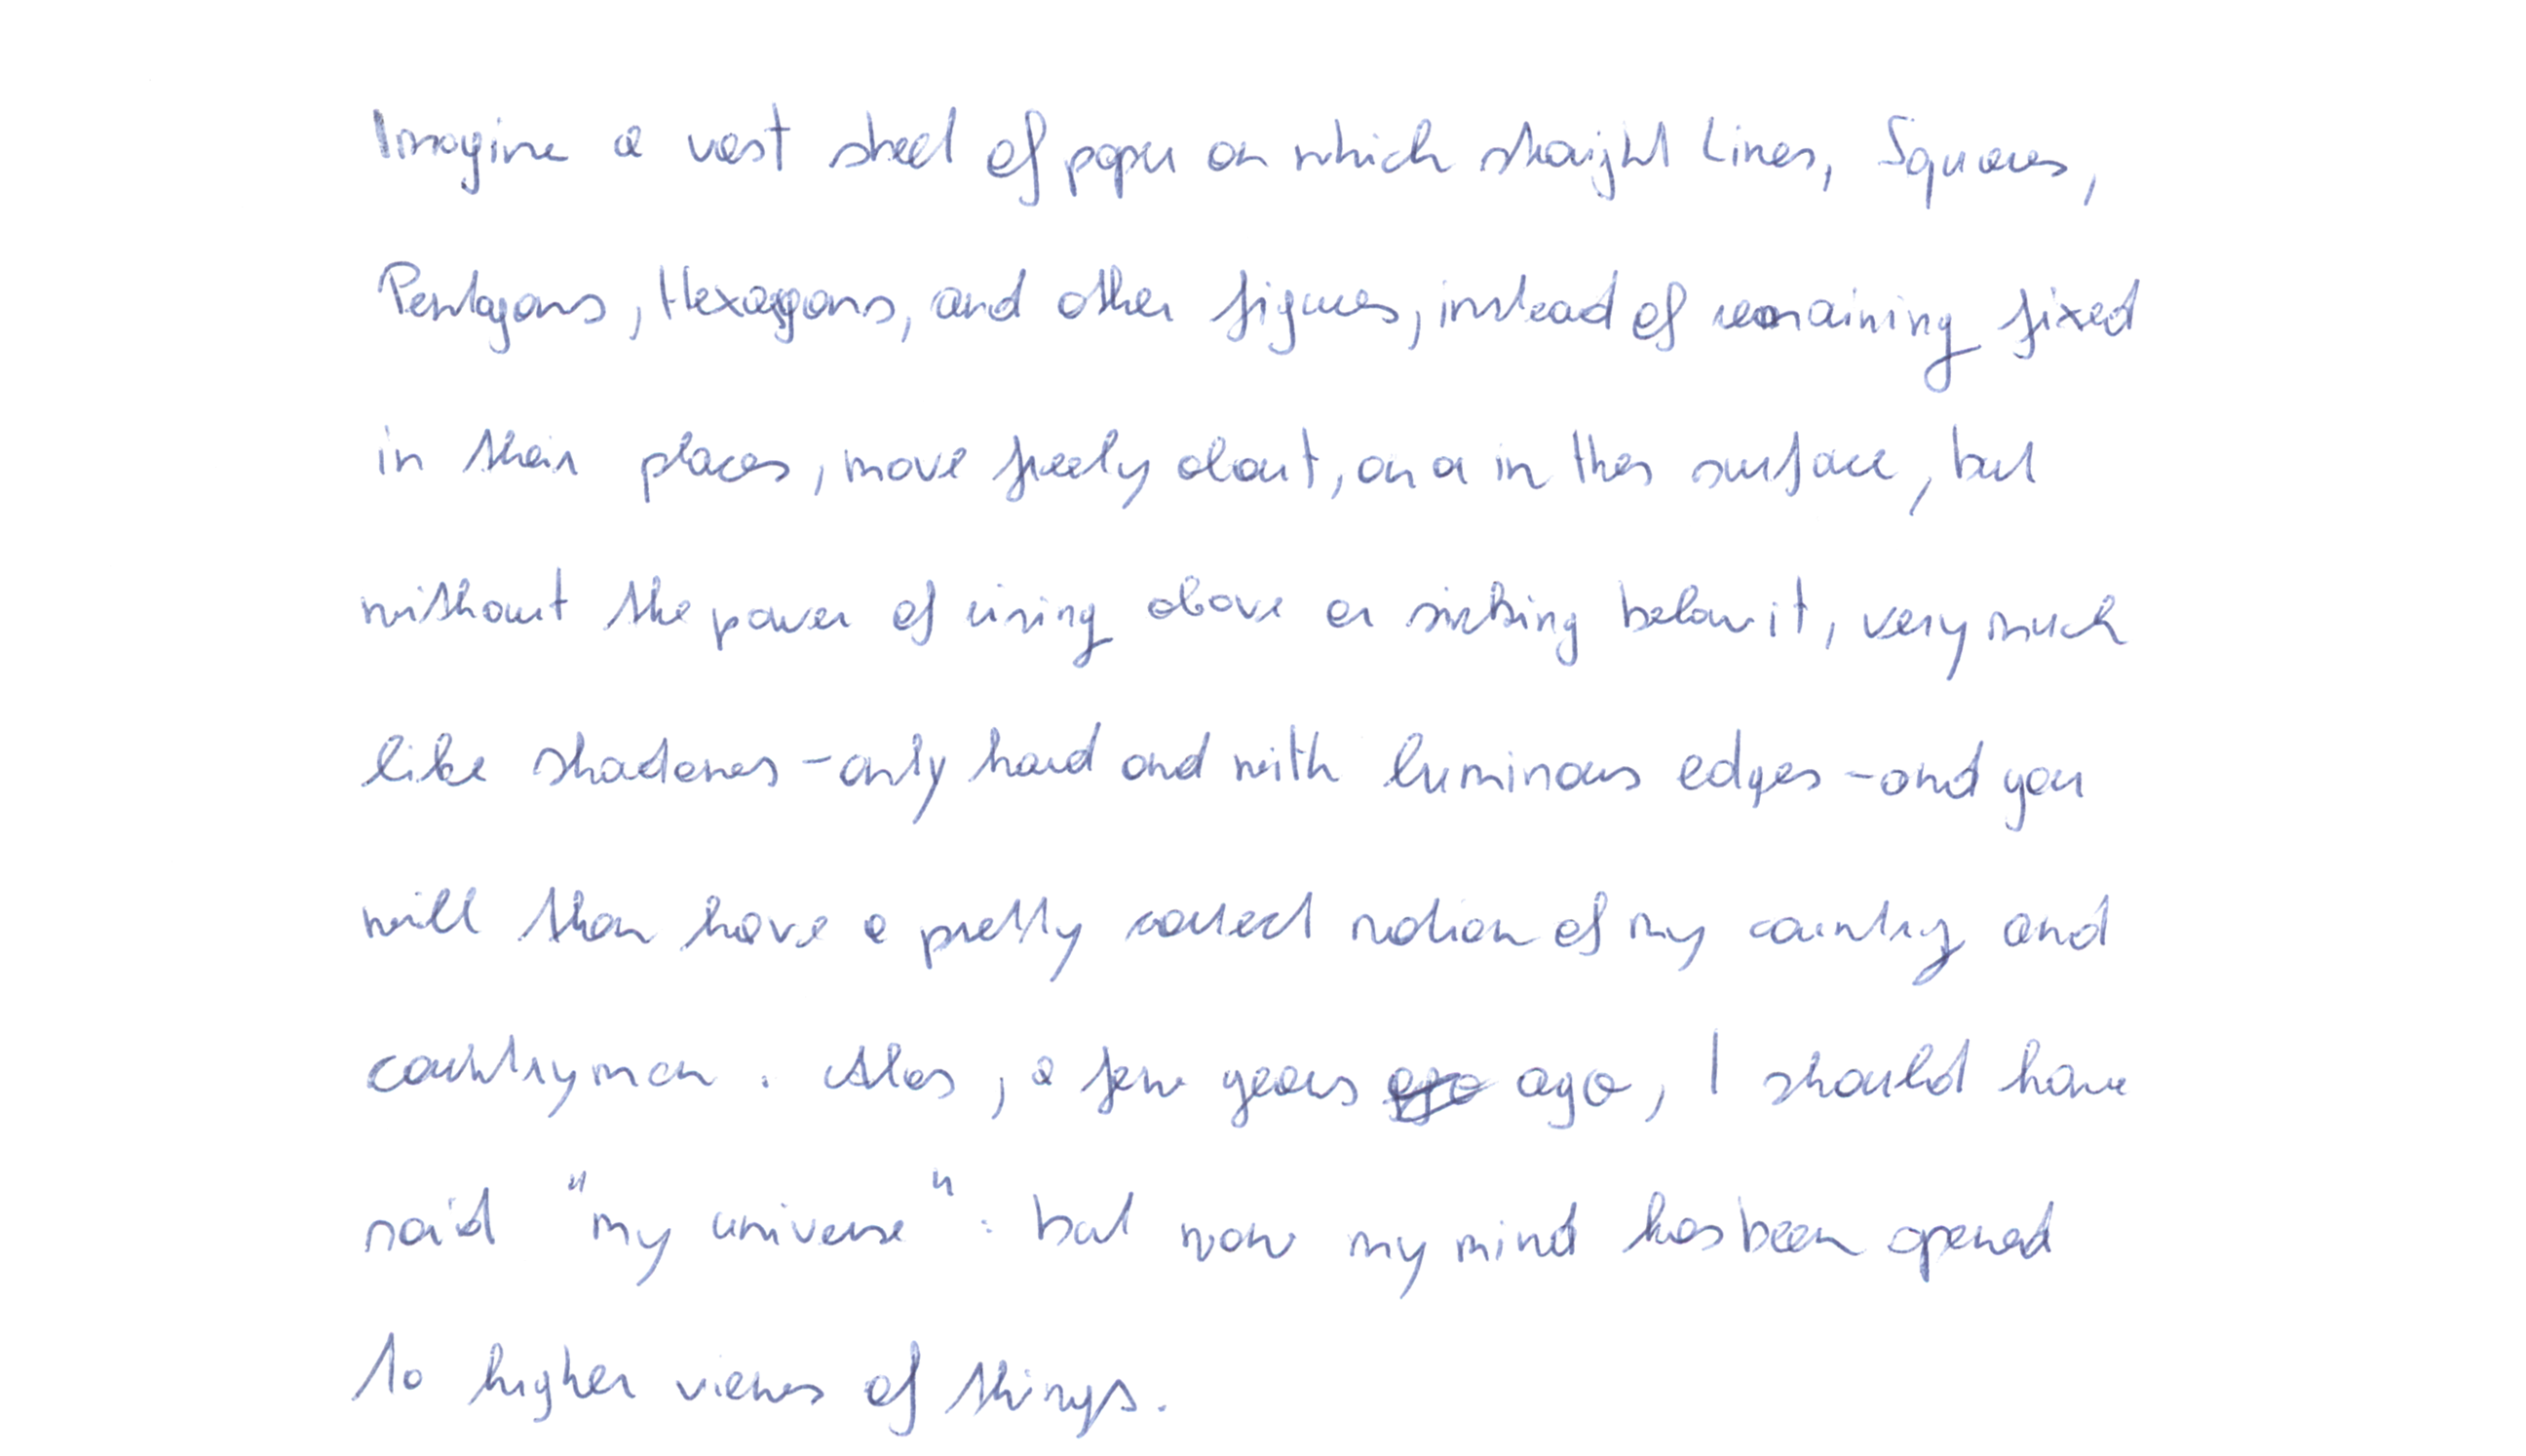 Imagine a vast sheet of paper on which straight Lines, Squares,
Pentagons, Hexagons, and other figures, instead of remaining fixed
in their places, move freely about, on or in the surface, but
without the power of rising above or sinking below it, very much
like shadows - only hard and with luminous edges - and you
will then have a pretty correct notion of my country and
countrymen. Alas, a few years ago ago, I should have
said "my universe": but now my mind has been opened
to higher views of things.